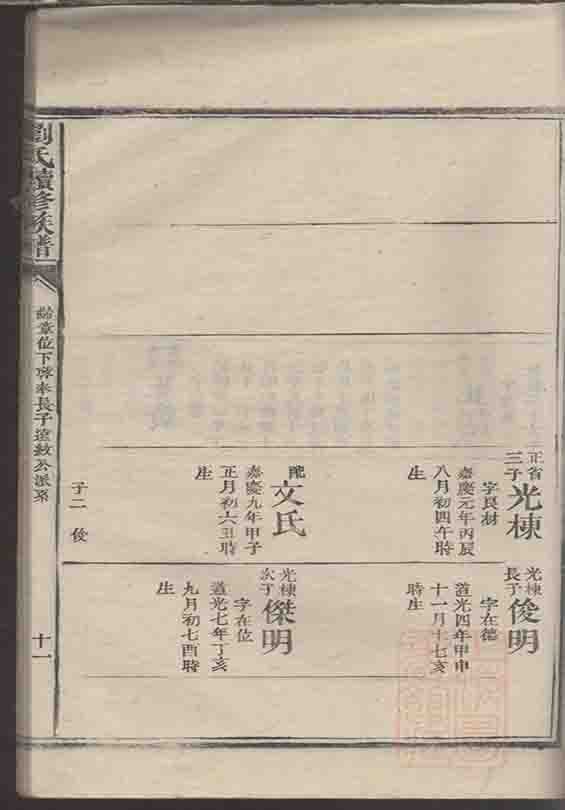 劉氏續修族譜
齡章位下尊奉長子遠敘公派系
十一
正省三子光棟
字良材
嘉慶元年丙辰
八月初四午時
生
配文氏
嘉慶九年甲子
正月初六丑時
生
子二 俊
光棟長子俊明
字在德
道光四年甲申
十一月十七亥
時生
光棟次子傑明
字在位
道光七年丁亥
九月初七酉時
生